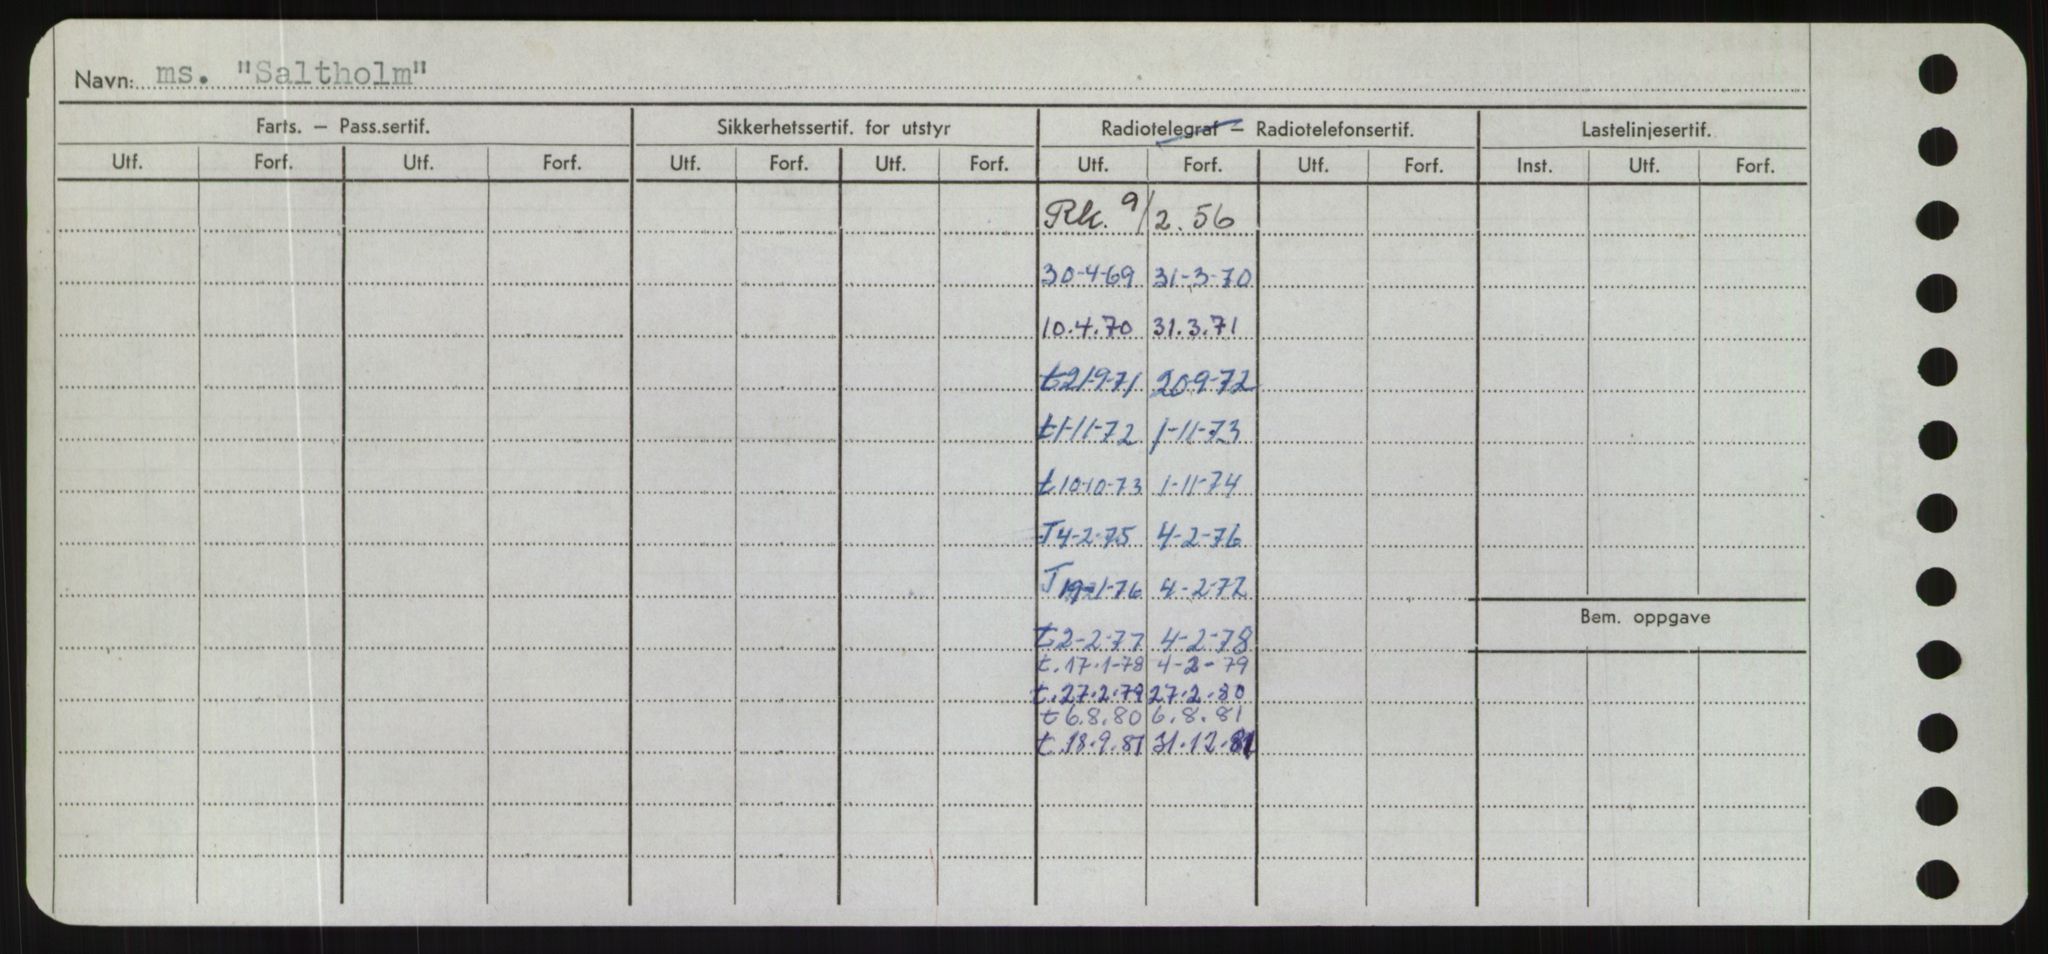 Navn: ms. "Saltholm"
Farts. – Pass.sertif. Sikkerhetssertif. for utstyr Radiotelegraf – Radiotelefonsertif. Lastelinjesertif.
Utf. Forf. Utf. Forf. Utf. Forf. Utf. Forf. Utf. Forf. Utf. Forf. Inst. Utf. Forf.
Rk. 9/2.56
30-4-69 31-3-70
10.4.70 31.3.71
t21-9-71 20-9-72
t1-11-72 1-11-73
t10-10-73 1-11-74
T4-2-75 4-2-76
T19-1-76 4-2-77
Bem. oppgave
t2-2-77 4-2-78
t.17.1-78 4-2-79
t.27.2.79 27.2.80
t6.8.80 6.8.81
t.18.9.81 31.12.81